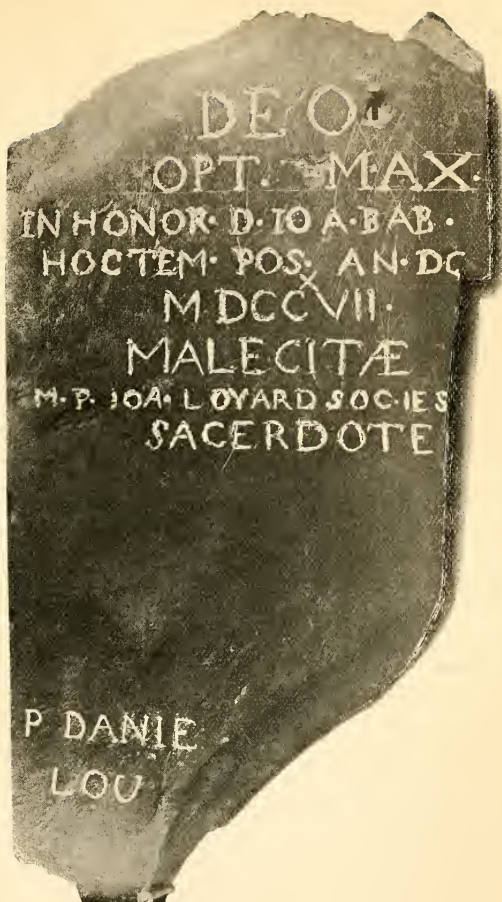 DEO.
OPT. MAX.
IN HONOR. D. IOA. BAB.
HOC TEM. POS. AN. DO
MDCCXVII.
MALECITÆ
M. P. IOA. LOYARD SOC. IES
SACERDOTE
P DANIE
LOU